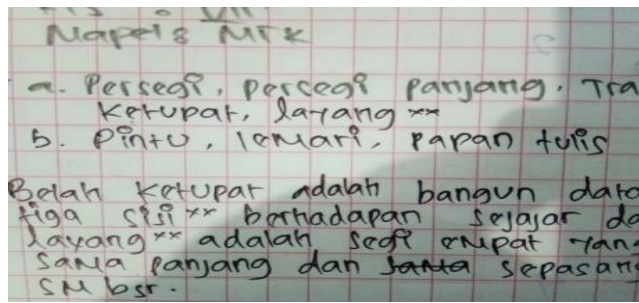 VII
Mapel : MTK
a. Persegi, percegi panjang. Tra
Ketupat, layang xx
b. Pintu, lemari, papan tulis
Belah Ketupat adalah bangun data
tiga sisi xx berhadapan sejajar da
layang xx adalah segi empat yan
sama panjang dan sepasang